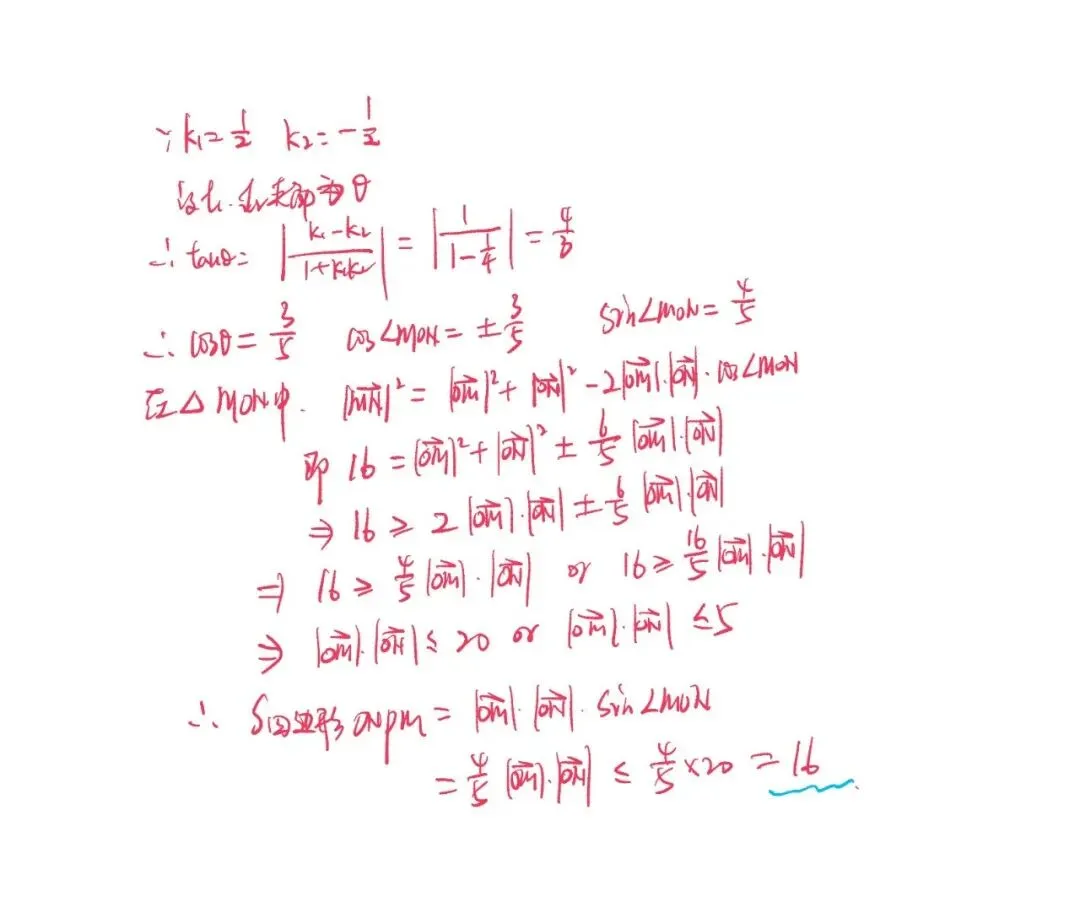 ∵ k₁ = 1/2 k₂ = -1/2
设l₁, l₂夹角为θ
∴ tanθ = |(k₁-k₂)/(1+k₁k₂)| = |1/(1-1/4)| = 4/3
∴ cosθ = 3/5 cos∠MON = ±3/5 sin∠MON = 4/5
在△MON中. |MN⃗|² = |OM⃗|² + |ON⃗|² - 2|OM⃗|·|ON⃗|·cos∠MON
即 16 = |OM⃗|² + |ON⃗|² ± 6/5 |OM⃗|·|ON⃗|
⇒ 16 ≥ 2|OM⃗|·|ON⃗| ± 6/5 |OM⃗|·|ON⃗|
⇒ 16 ≥ 4/5 |OM⃗|·|ON⃗| or 16 ≥ 16/5 |OM⃗|·|ON⃗|
⇒ |OM⃗|·|ON⃗| ≤ 20 or |OM⃗|·|ON⃗| ≤ 5
∴ S四边形ONPM = |OM⃗|·|ON⃗|·sin∠MON
= 4/5 |OM⃗|·|ON⃗| ≤ 4/5 × 20 = 16